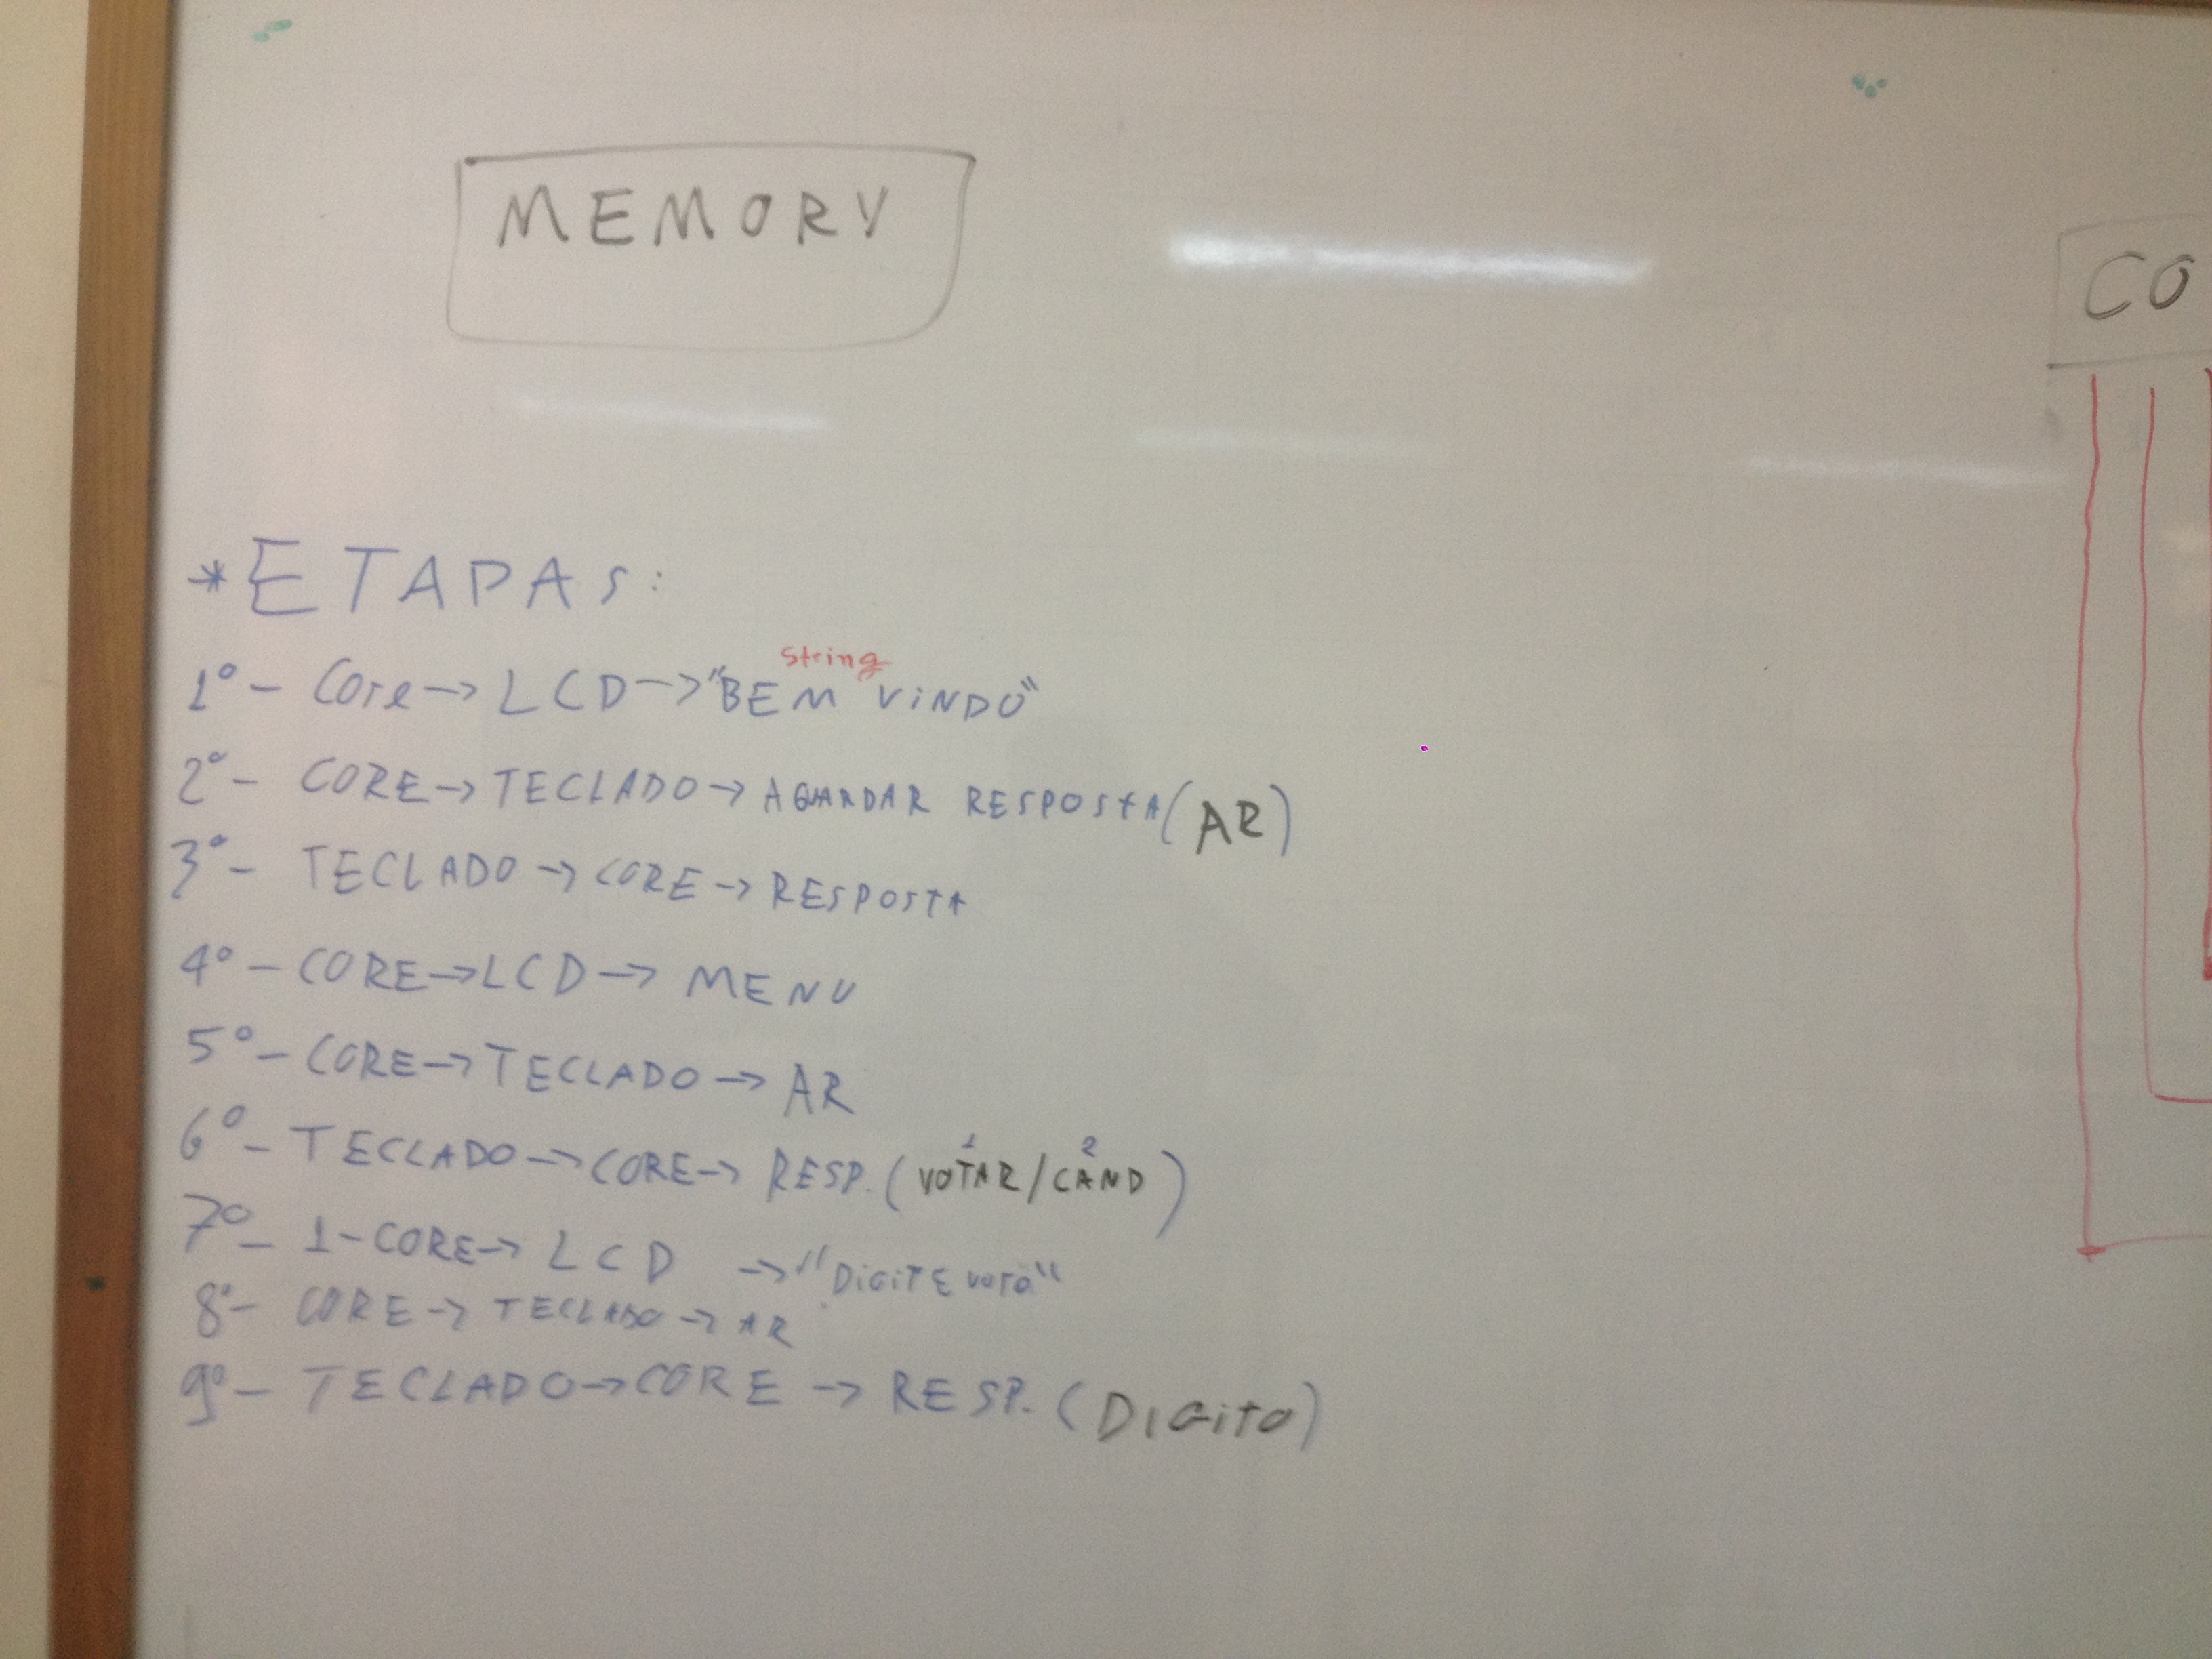 MEMORY
CO
* ETAPAS:
String
1º - Core -> LCD -> "BEM VINDO"
2º - CORE -> TECLADO -> AGUARDAR RESPOSTA (AR)
3º - TECLADO -> CORE -> RESPOSTA
4º - CORE -> LCD -> MENU
5º - CORE -> TECLADO -> AR
1 2
6º - TECLADO -> CORE -> RESP. (VOTAR/CAND)
7º - 1 - CORE -> LCD -> "DIGITE VOTO"
8º - CORE -> TECLADO -> AR
9º - TECLADO -> CORE -> RESP. (DIGITO)